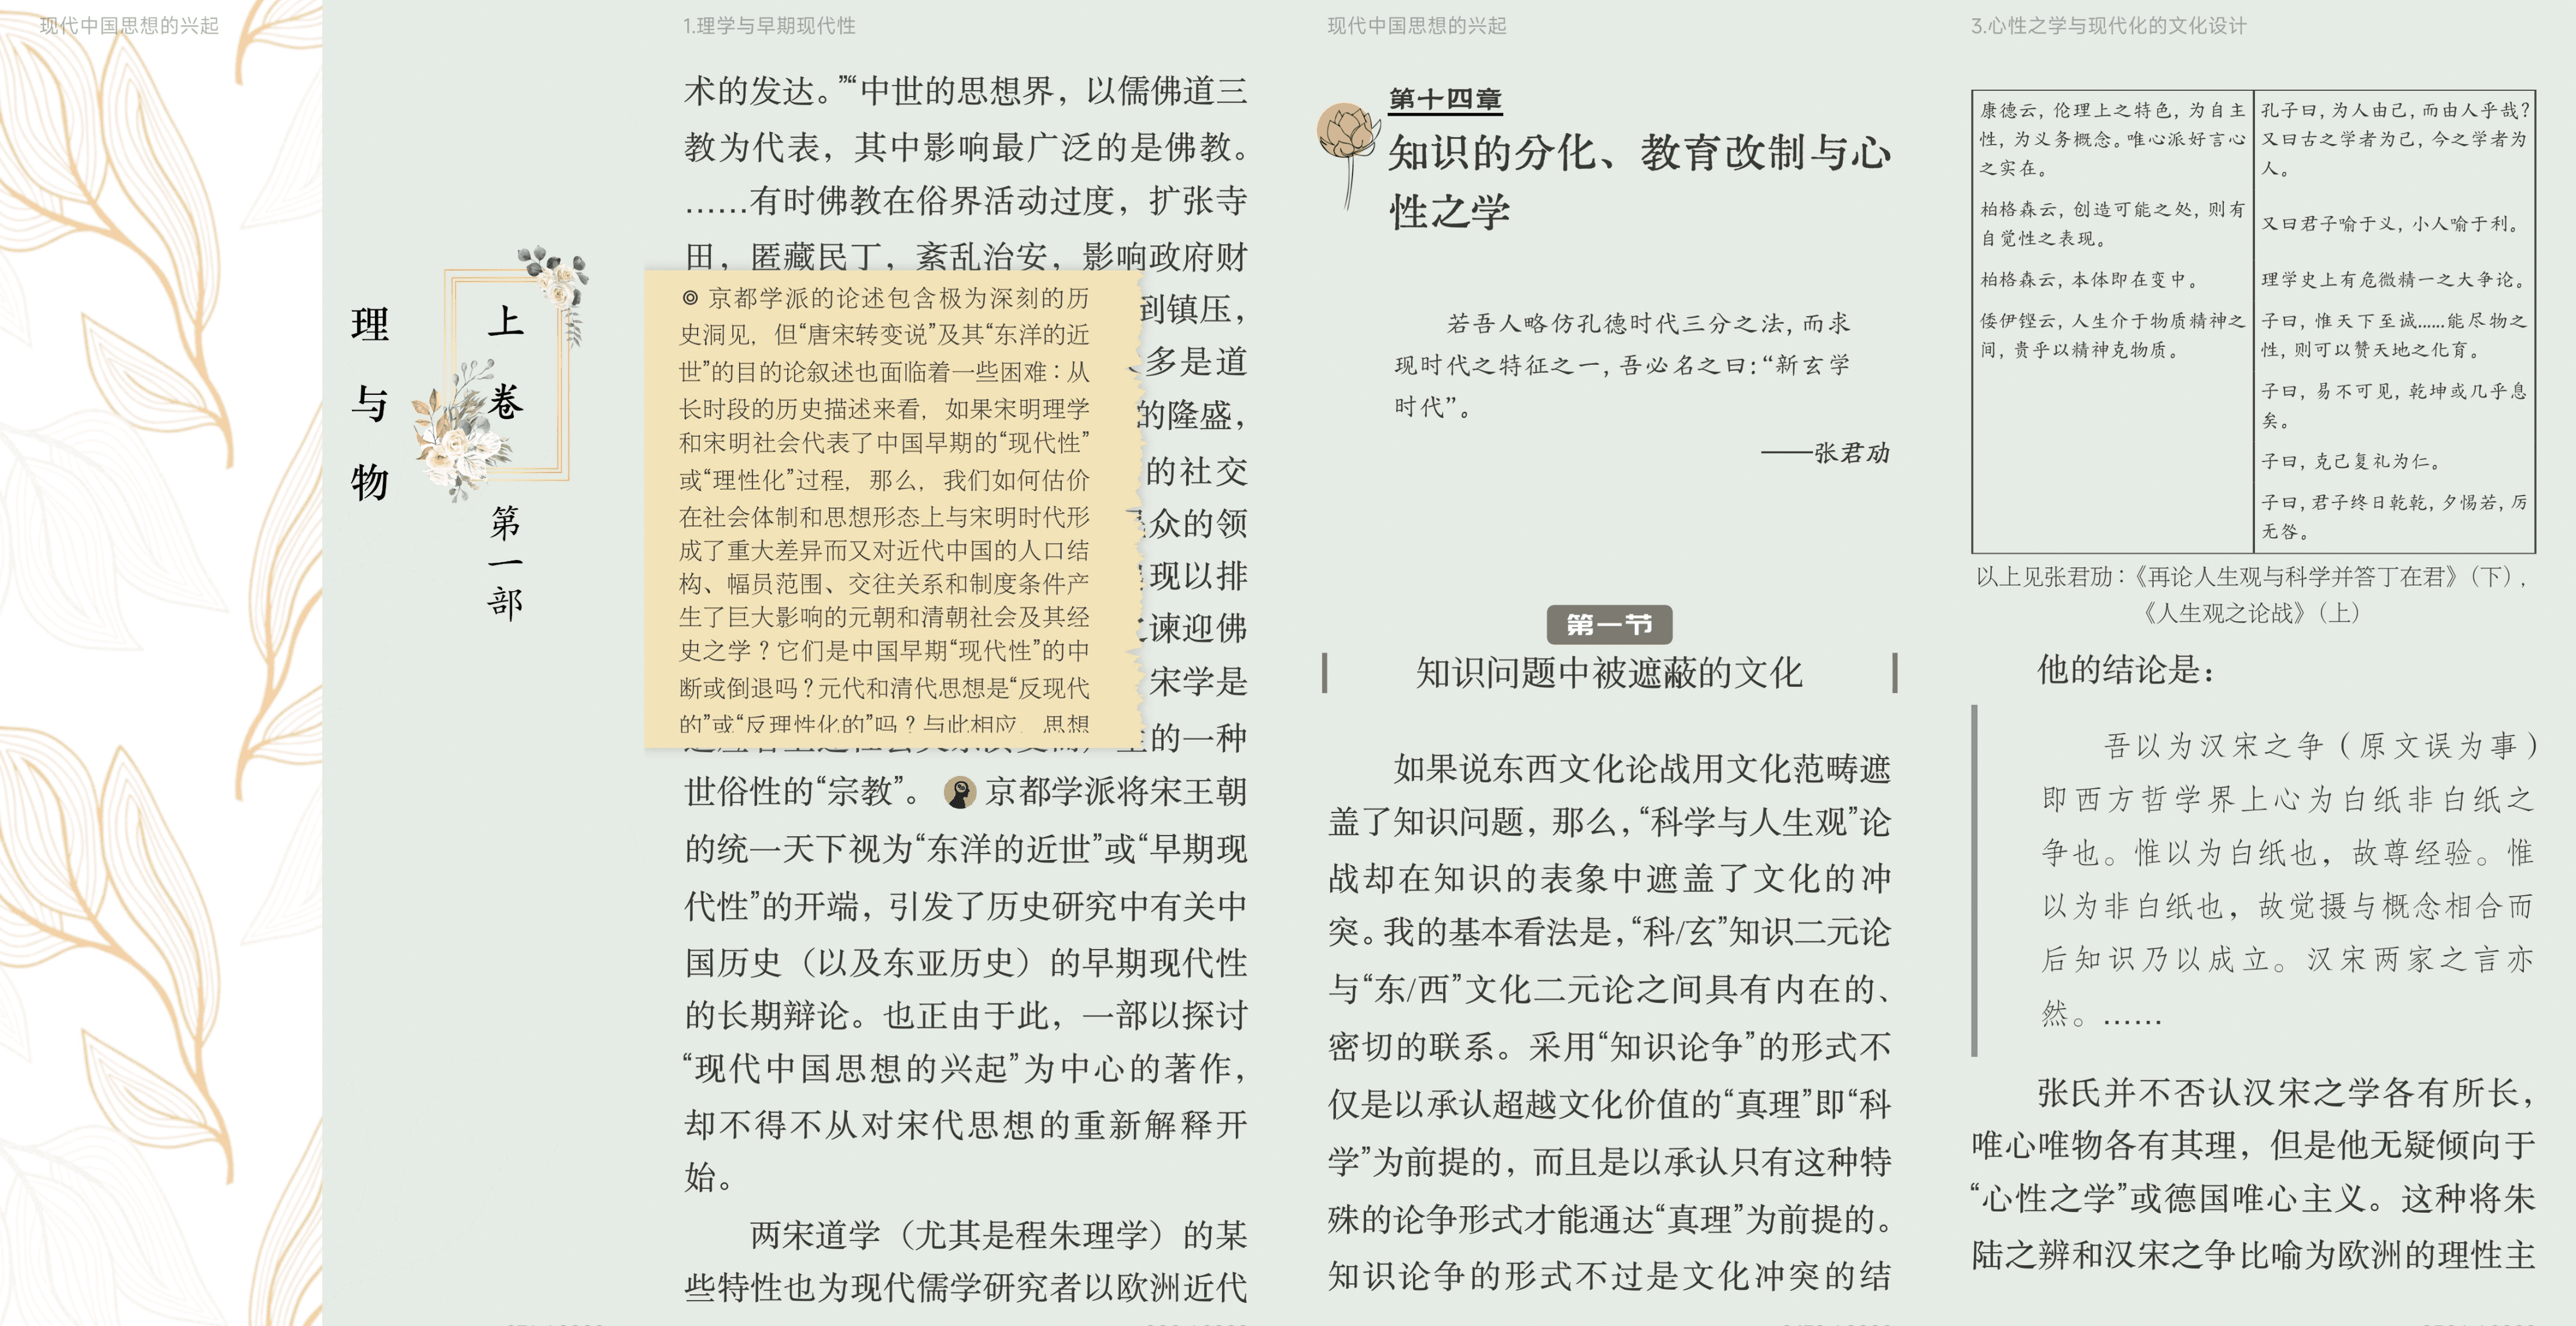 现代中国思想的兴起
上卷 第一部
理与物
1.理学与早期现代性
术的发达。”“中世的思想界，以儒佛道三
教为代表，其中影响最广泛的是佛教。
……有时佛教在俗界活动过度，扩张寺
田，匿藏民丁，紊乱治安，影响政府财
到镇压，
多是道
的隆盛，
的社交
众的领
现以排
谏迎佛
宋学是
的一种
◎ 京都学派的论述包含极为深刻的历
史洞见，但“唐宋转变说”及其“东洋的近
世”的目的论叙述也面临着一些困难：从
长时段的历史描述来看，如果宋明理学
和宋明社会代表了中国早期的“现代性”
或“理性化”过程，那么，我们如何估价
在社会体制和思想形态上与宋明时代形
成了重大差异而又对近代中国的人口结
构、幅员范围、交往关系和制度条件产
生了巨大影响的元朝和清朝社会及其经
史之学？它们是中国早期“现代性”的中
断或倒退吗？元代和清代思想是“反现代
的”或“反理性化的”吗？与此相应，思想
世俗性的“宗教”。京都学派将宋王朝
的统一天下视为“东洋的近世”或“早期现
代性”的开端，引发了历史研究中有关中
国历史（以及东亚历史）的早期现代性
的长期辩论。也正由于此，一部以探讨
“现代中国思想的兴起”为中心的著作，
却不得不从对宋代思想的重新解释开
始。
两宋道学（尤其是程朱理学）的某
些特性也为现代儒学研究者以欧洲近代
现代中国思想的兴起
第十四章
知识的分化、教育改制与心
性之学
若吾人略仿孔德时代三分之法，而求
现时代之特征之一，吾必名之曰：“新玄学
时代”。
——张君劢
第一节
知识问题中被遮蔽的文化
如果说东西文化论战用文化范畴遮
盖了知识问题，那么，“科学与人生观”论
战却在知识的表象中遮盖了文化的冲
突。我的基本看法是，“科/玄”知识二元论
与“东/西”文化二元论之间具有内在的、
密切的联系。采用“知识论争”的形式不
仅是以承认超越文化价值的“真理”即“科
学”为前提的，而且是以承认只有这种特
殊的论争形式才能通达“真理”为前提的。
知识论争的形式不过是文化冲突的结
3.心性之学与现代化的文化设计
康德云，伦理上之特色，为自主
性，为义务概念。唯心派好言心
之实在。
孔子曰，为人由己，而由人乎哉？
又曰古之学者为己，今之学者为
人。
柏格森云，创造可能之处，则有
自觉性之表现。
又曰君子喻于义，小人喻于利。
柏格森云，本体即在变中。
理学史上有危微精一之大争论。
倭伊铿云，人生介于物质精神之
间，贵乎以精神克物质。
子曰，惟天下至诚……能尽物之
性，则可以赞天地之化育。
子曰，易不可见，乾坤或几乎息
矣。
子曰，克己复礼为仁。
子曰，君子终日乾乾，夕惕若，厉
无咎。
以上见张君劢：《再论人生观与科学并答丁在君》（下），
《人生观之论战》（上）
他的结论是：
吾以为汉宋之争（原文误为事）
即西方哲学界上心为白纸非白纸之
争也。惟以为白纸也，故尊经验。惟
以为非白纸也，故觉摄与概念相合而
后知识乃以成立。汉宋两家之言亦
然。……
张氏并不否认汉宋之学各有所长，
唯心唯物各有其理，但是他无疑倾向于
“心性之学”或德国唯心主义。这种将朱
陆之辨和汉宋之争比喻为欧洲的理性主